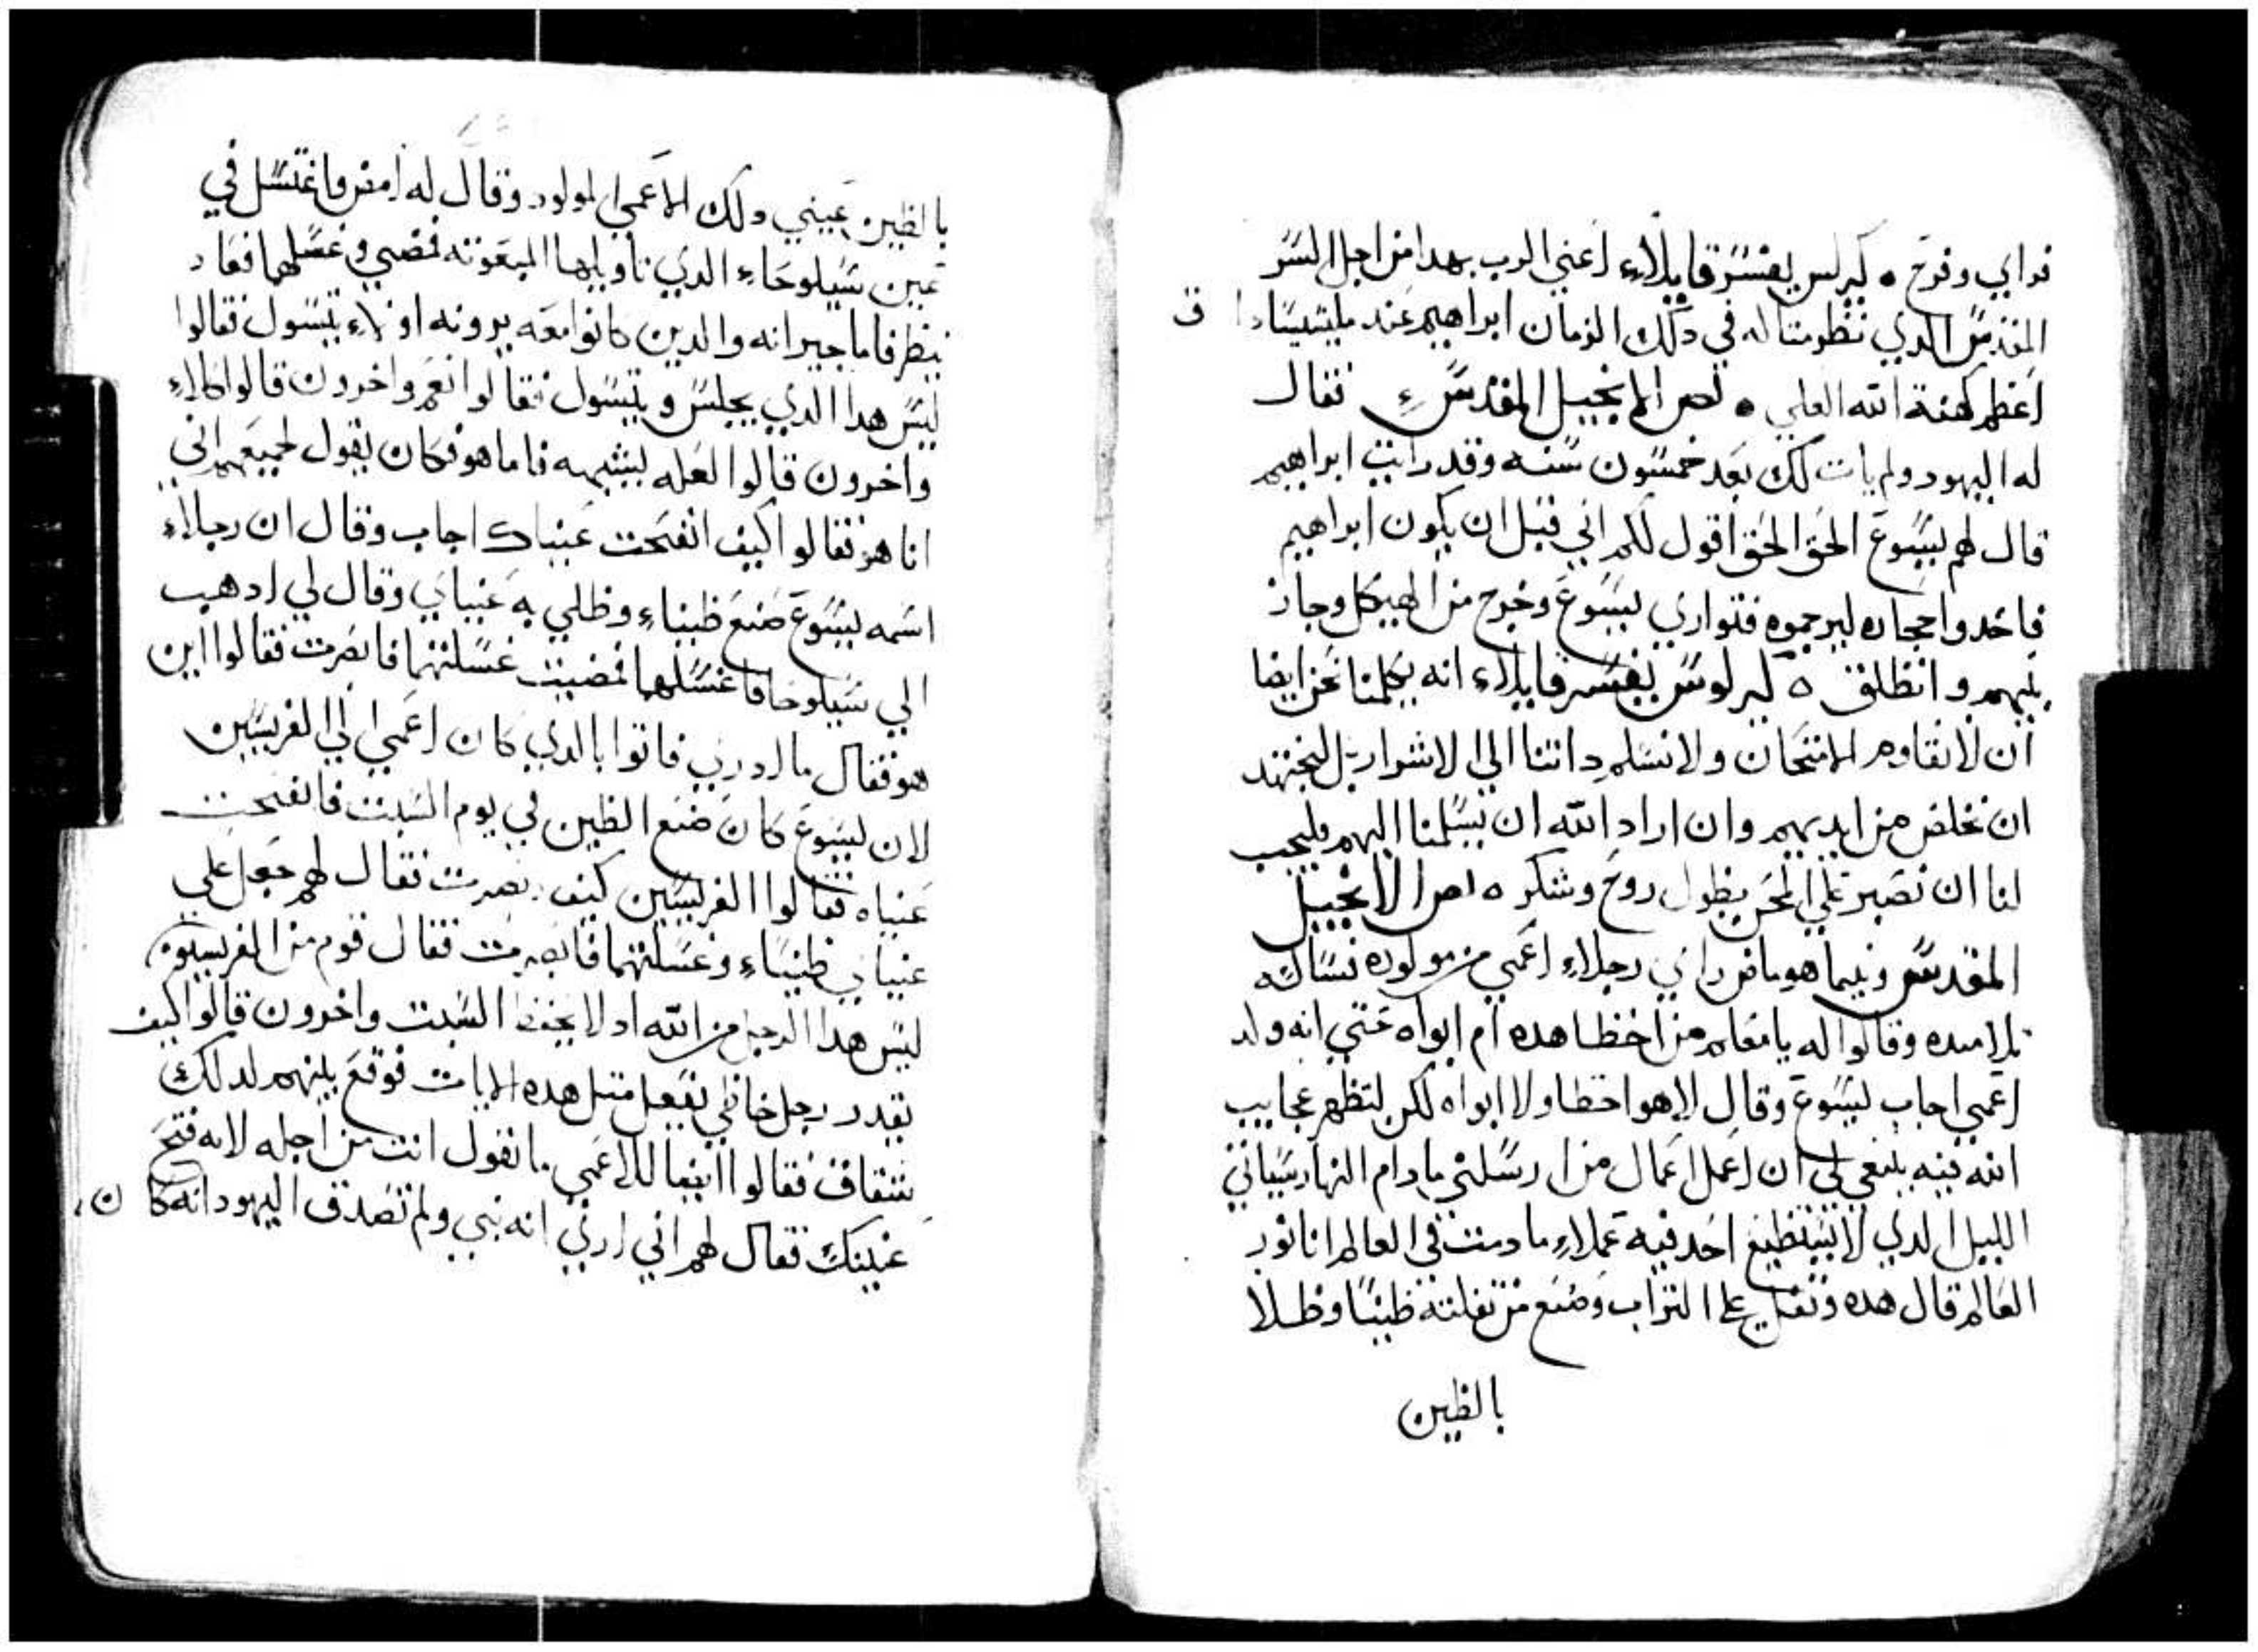 فراي وفرح ٥ كيرلس يفسر قايلاء اعني الرب بهدا من اجل السر
المقدس الدي نظر مثاله في دلك الزمان ابراهيم عند مليشيسادا ق
اعظم كهنة الله العلي ٥ نص الانجيل المقدس ء فقال
له اليهود ولم يات لك بعد خمسون سنه وقد رايت ابراهيم
قال لهم يسوع الحق الحق اقول لكم اني قبل ان يكون ابراهيم
فاخدوا حجاره ليرجموه فتواري يسوع وخرج من الهيكل وجاز
بينهم وانطلق ٥ كيرلوس يفسر قايلاء انه يكلمنا نحن ايضا
ان لا نقاوم الامتحان ولا نسلم داتنا الي الاشرار بل نجتهد
ان نخلص من ايديهم وان اراد الله ان يسلمنا اليهم فيجب
لنا ان نصبر علي المحن بطول روح وشكر ٥ نص الانجيل
المقدس وفيما هو ماض راي رجلاء اعمي من مولوده فساله
تلاميده وقالوا له يا معلم من اخطا هده ام ابواه حتي انه ولد
اعمي اجاب يسوع وقال لا هو اخطا ولا ابواه لكن لتظهر عجايب
الله فيه ينبغي لي ان اعمل اعمال من ارسلني ما دام النهار سياتي
الليل الدي لا يستطيع احد فيه عملاء ما دمت في العالم انا نور
العالم قال هده وتفل علي التراب وصنع من تفلته طينا وطلا
بالطين
بالطين عيني دلك الاعمي المولود وقال له امض فاغتسل في
عين سيلوحاء الدي تاويلها المبعوته فمضي وغسلهما فعاد
ينظر فاما جيرانه والدين كانوا معه يرونه اولاء يتسول فقالوا
ليس هدا الدي يجلس ويتسول فقالوا نعم واخرون قالوا كلاء
واخرون قالوا لعله يشبهه فاما هو فكان يقول لجميعهم اني
انا هو فقالوا كيف انفتحت عيناك اجاب وقال ان رجلاء
اسمه يسوع صنع طيناء وطلي به عيناي وقال لي ادهب
الي سيلوحا فاغسلهما فمضيت غسلتهما فابصرت فقالوا اين
هو فقال ما ادري فاتوا بالدي كان اعمي الي الفريسين
لان يسوع كان صنع الطين في يوم السبت فانفتحت
عيناه فقالوا الفريسين كيف بصرت فقال لهم جعل علي
عيناي طيناء وغسلتهما فابصرت فقال قوم من الفريسيون
ليس هدا الرجل من الله اد لا يحفظ السبت واخرون قالوا كيف
يقدر رجل خاطي يفعل مثل هده الايات فوقع بينهم لدلك
شقاق فقالوا ايضا للاعمي ما تقول انت من اجله لانه فتح
عينيك فقال لهم اني اري انه نبي ولم تصدق اليهود انه كا ن